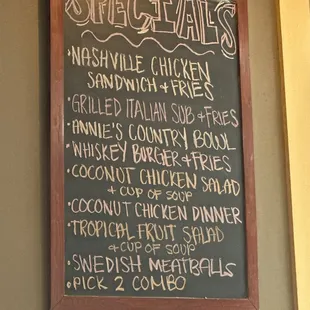 SPECIALS
• NASHVILLE CHICKEN
SANDWICH + FRIES
• GRILLED ITALIAN SUB + FRIES
• ANNIE'S COUNTRY BOWL
• WHISKEY BURGER + FRIES
• COCONUT CHICKEN SALAD
+ CUP OF SOUP
• COCONUT CHICKEN DINNER
• TROPICAL FRUIT SALAD
+ CUP OF SOUP
• SWEDISH MEATBALLS
• PICK 2 COMBO